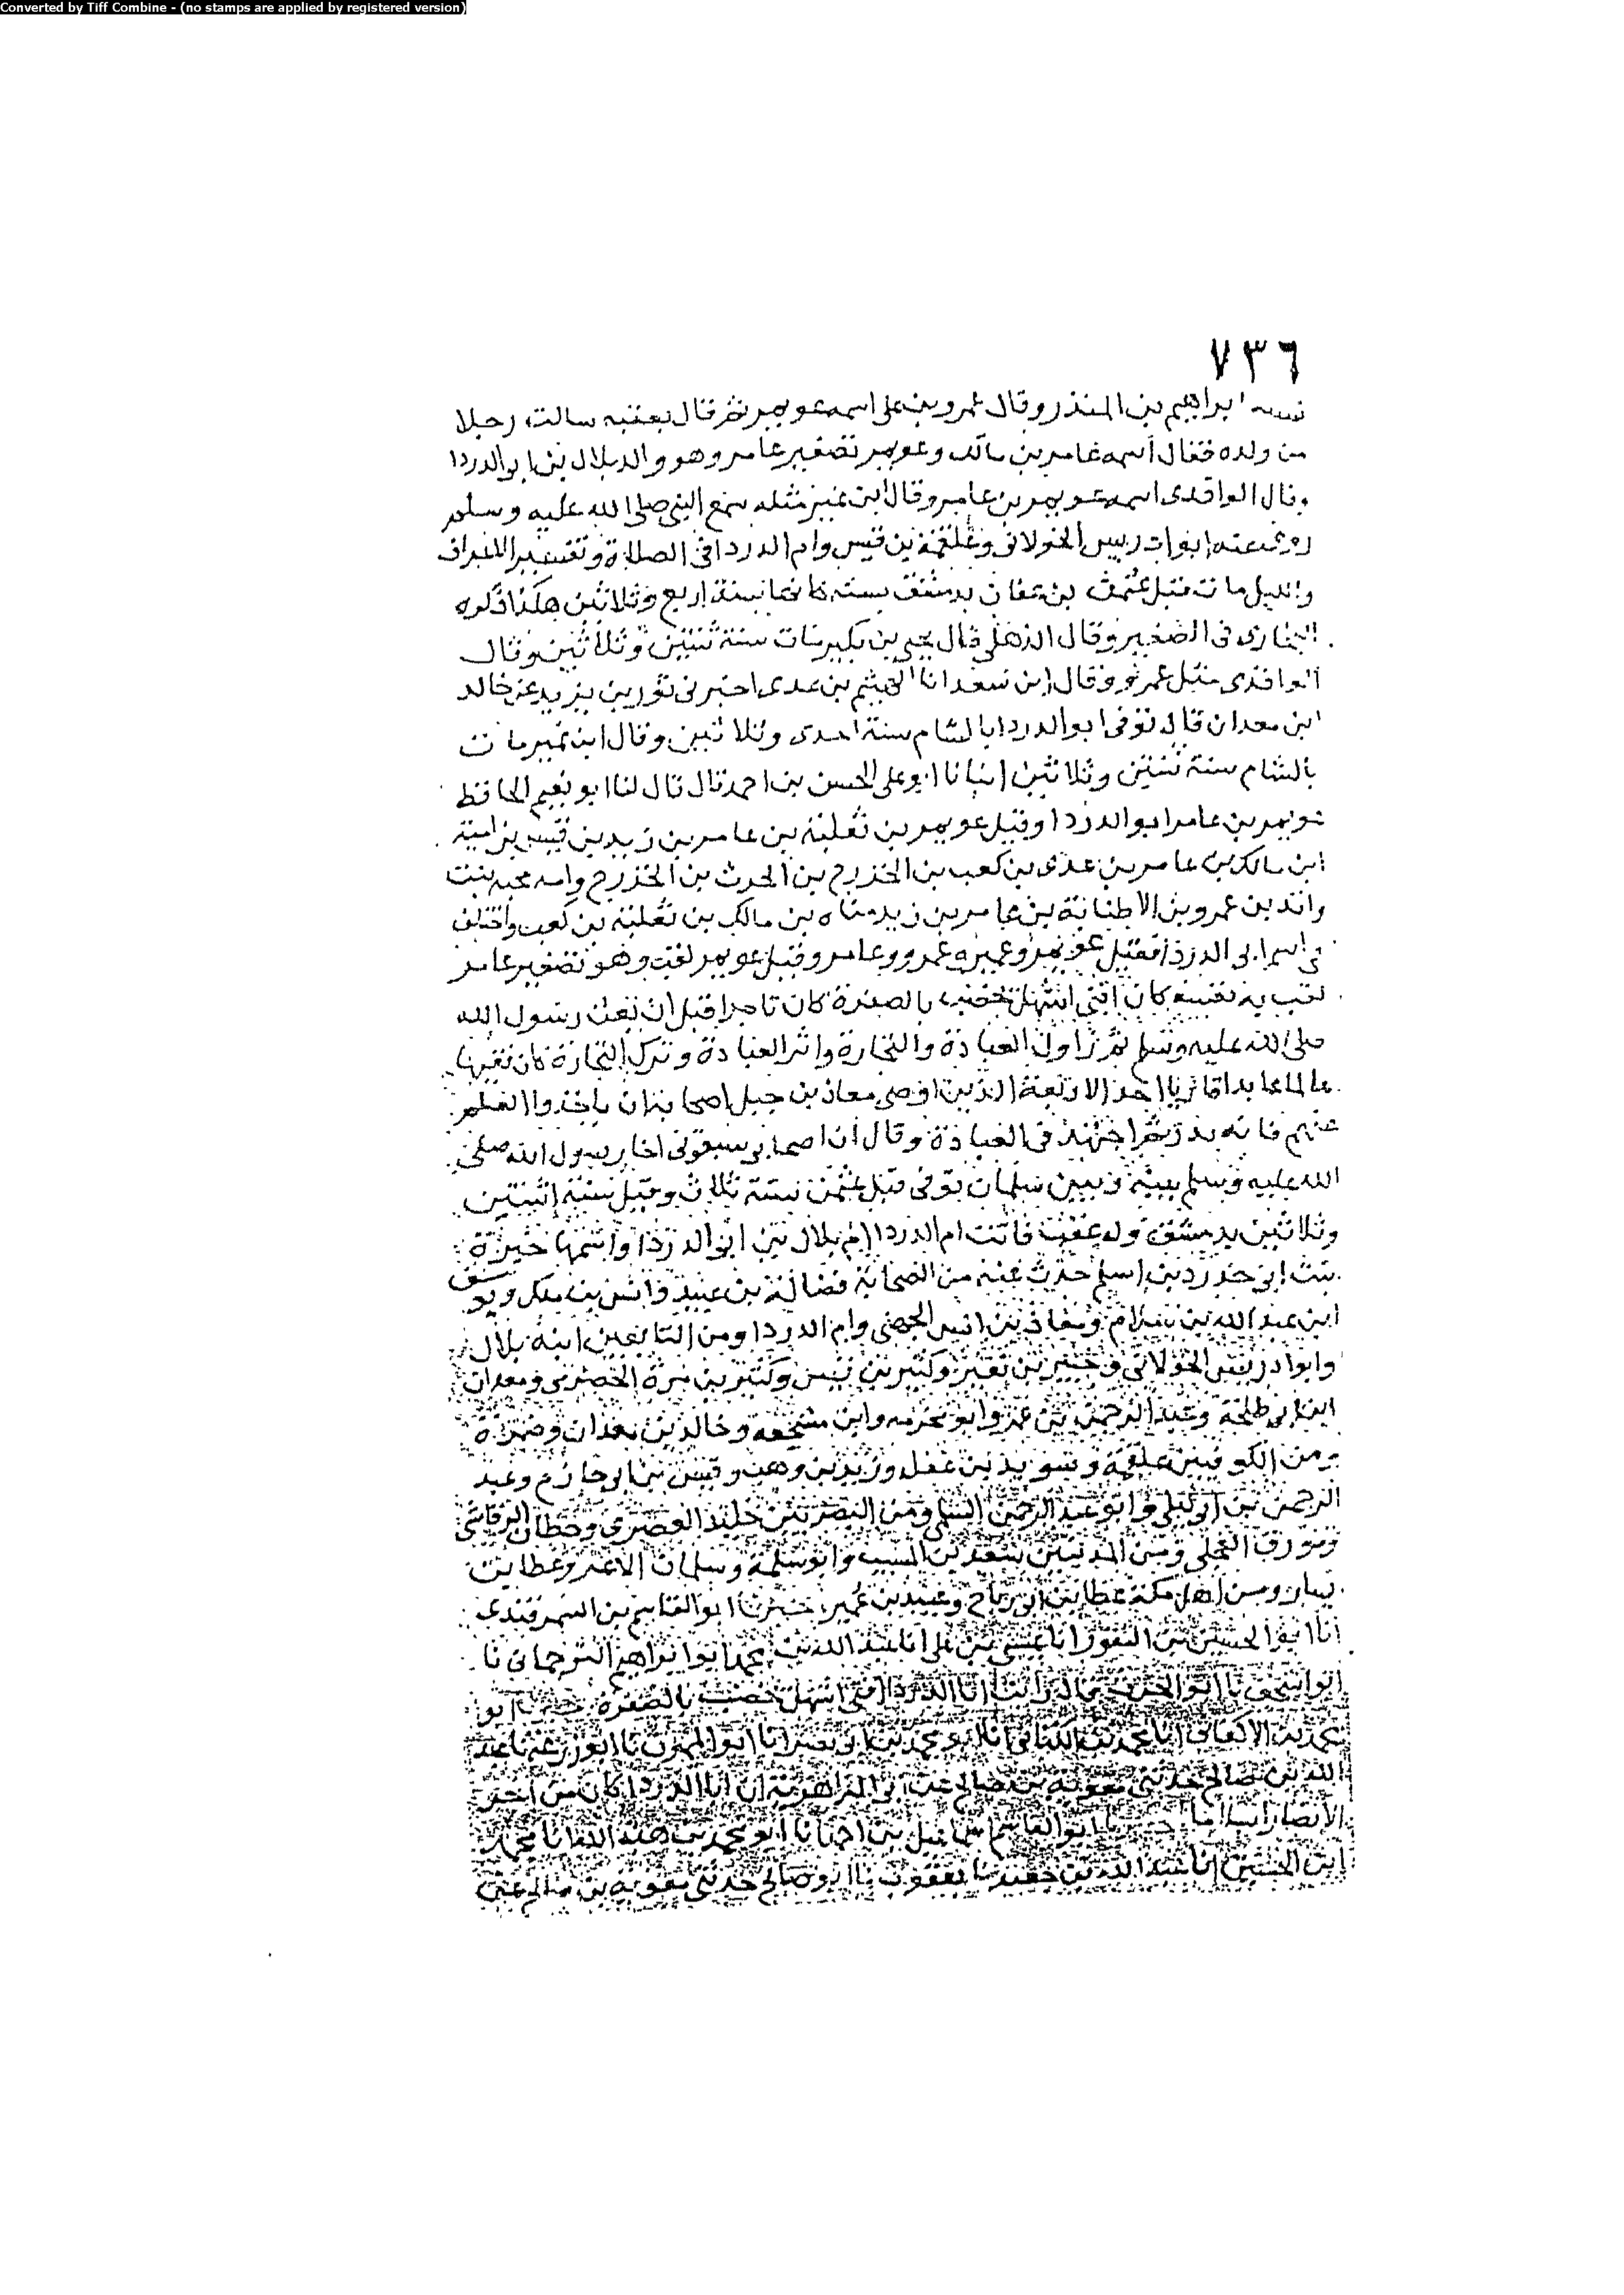 Converted by Tiff Combine - (no stamps are applied by registered version)
٧٣٦
نسبه ابراهيم بن المنذر وقال عمرو بن على اسمه عويمر ثم قال بعقبه سالت رجلا
من ولده فقال اسمه عامر بن مالك وعويمر تصغير عامر وهو والد بلال بن ابو الدردا
وقال الواقدى اسمه عويمر بن عامر وقال ابن نمير مثله سمع النبى صلى الله عليه وسلم
روى عنه ابو ادريس الخولانى وعلقمة بن قيس وام الدردا فى الصلاة وتفسير الاعراف
والليل مات قبل عثمن بن عفان بدمشق سنة اربع وثلاثين هكذا ذكره
البخارى فى الصغير وقال الذهلى قال يحيى بن بكير مات سنة ثنتين وثلاثين وقال
الواقدى مثل عمرو وقال ابن سعد انا الهيثم بن عدى اخبرنى ثور بن يزيد عن خالد
ابن معدان قال توفى ابو الدردا بالشام سنة احدى وثلاثين وقال ابن نمير مات
بالشام سنة ثنتين وثلاثين انبانا ابو على الحسن بن احمد قال قال لنا ابو نعيم الحافظ
عويمر بن عامر ابو الدردا وقيل عويمر بن ثعلبة بن عامر بن زيد بن قيس بن امية
ابن مالك بن عامر بن عدى بن كعب بن الخزرج بن الحرث بن الخزرج وامه محبه بنت
واقد بن عمرو بن الاطنابة بن عامر بن زيد مناه بن مالك بن ثعلبة بن كعب واختلف
فى اسم ابى الدردا فقيل عويمر وعمرو وعامر وقيل عويمر لقب وهو تصغير عامر
لقب به نفسه كان اقنى اشهل يخضب بالصفرة كان تاجرا قبل ان بعث رسول الله
صلى الله عليه وسلم ثم زاول العبادة والتجارة واثر العبادة وترك التجارة كان فقيها
عالما عابدا قاريا احد الاربعة الذين اوصى معاذ بن جبل اصحابه ان ياخذوا العلم
عنهم فاته بدر ثم اجتهد فى العبادة وقال ان اصحابى سبقونى اخا رسول الله صلى
الله عليه وسلم بينه وبين سلمان توفى قبل عثمن سنة ثلاث وقيل سنة اثنتين
وثلاثين بدمشق وله عقب فاتت ام الدردا ام بلال بن ابو الدردا واسمها خيرة
بنت ابى حدرد بن اسلم حدث عنه من الصحابة فضالة بن عبيد وانس بن ملك ويوسف
ابن عبد الله بن سلام ومعاذ بن انس الجهنى وام الدردا ومن التابعين ابنه بلال
وابو ادريس الخولانى وجبير بن نفير وكثير بن قيس وكثير بن مرة الحضرمى ومعدان
ابن ابى طلحة وعبد الرحمن بن غنم وابو بحريه وابن مشجعه وخالد بن معدان وضمرة
ومن الكوفيين علقمة وسويد بن غفل وزيد بن وهب وقيس بن ابو حازم وعبد
الرحمن بن ابى ليلى وابو عبد الرحمن السلمى ومن البصريين خليد العصرى وحطان الرقاشى
ومورق العجلى ومن المدنيين سعيد بن المسيب وابو سلمة وسلمان الاغر وعطا بن
يسار ومن اهل مكة عطا بن ابى رباح وعبيد بن عمير اخبرنا ابو القاسم بن السمرقندى
انا ابو الحسين بن النقور انا عيسى بن على انا عبد الله بن محمد ابو ابراهيم الترجمانى نا
ابو اسحق نا ابو الحرث قال رايت ابا الدردا اقنى اشهل يخضب بالصفرة اخبرنا ابو
محمد بن الاكفانى انا محمد الكتانى انا ابو محمد بن ابى نصر انا ابو الميمون نا ابو زرعة نا عبد
الله بن صالح حدثنى معوية بن صالح عن ابى الزاهرية ان ابا الدردا كان من اخر
الانصار اسلاما اخبرنا ابو القاسم اسماعيل بن احمد انا ابو محمد بن هبة الله انا محمد
ابن الحسين انا عبد الله بن جعفر نا يعقوب نا ابو صالح حدثنى معوية بن صالح عن